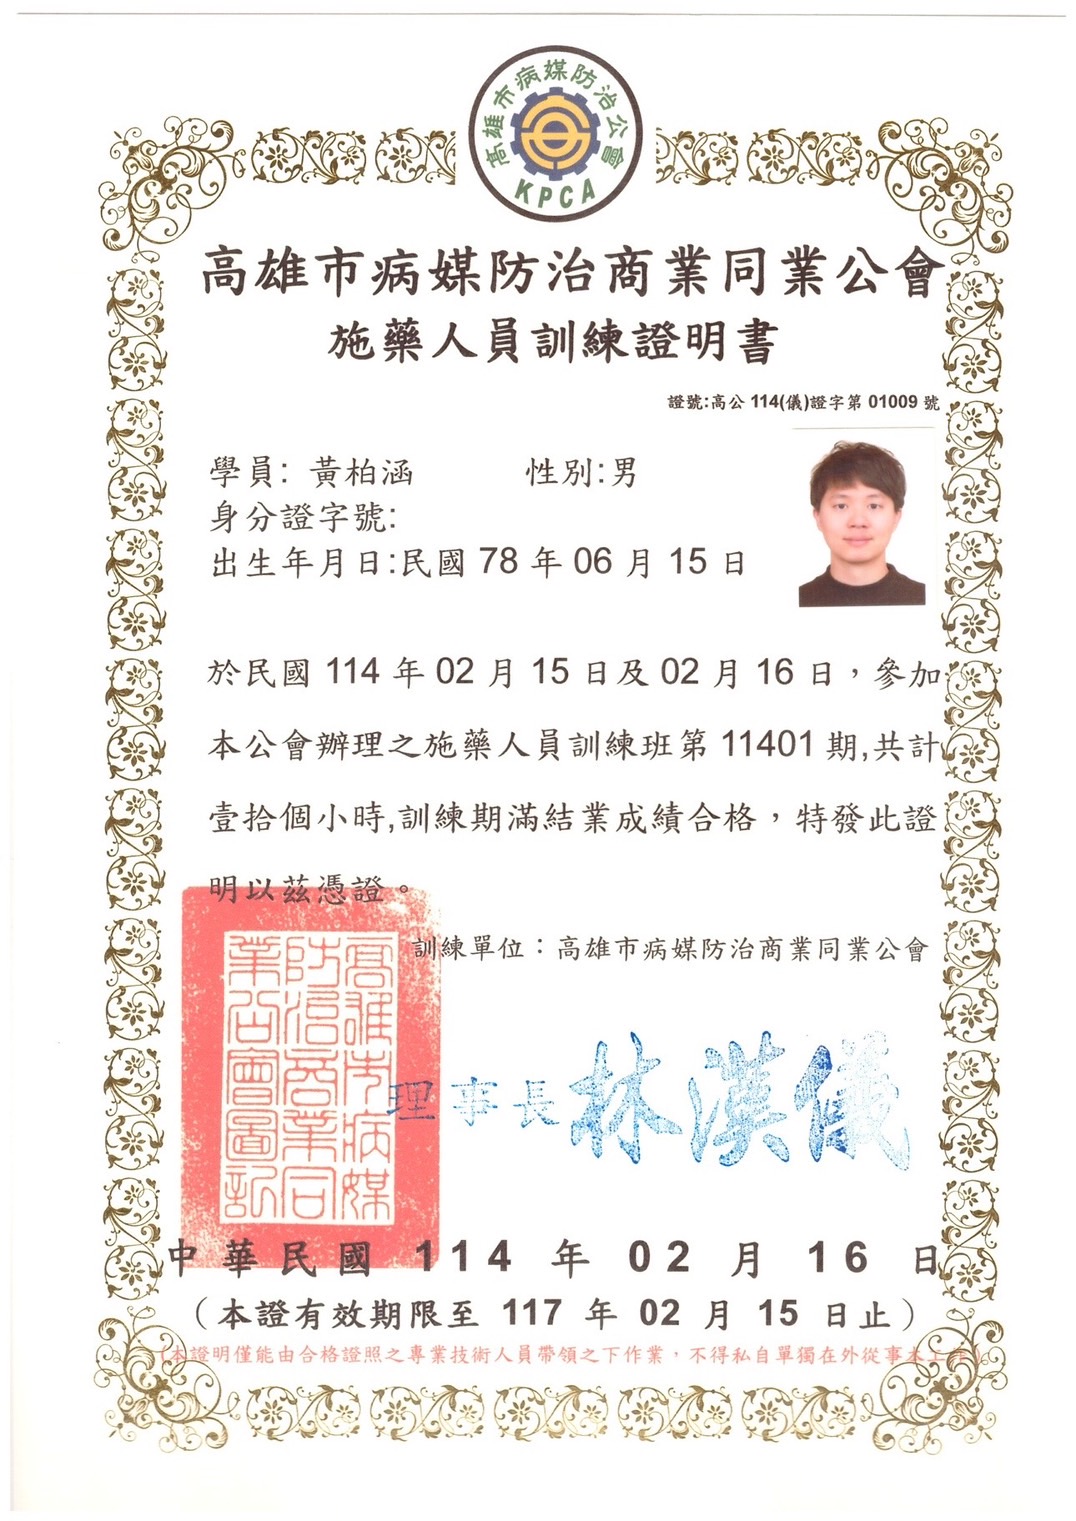 高雄市病媒防治公會
KPCA
高雄市病媒防治商業同業公會
施藥人員訓練證明書
證號:高公 114(儀)證字第 01009 號
學員: 黃柏涵 性別:男
身分證字號:
出生年月日:民國 78 年 06 月 15 日
於民國 114 年 02 月 15 日及 02 月 16 日，參加
本公會辦理之施藥人員訓練班第 11401 期,共計
壹拾個小時,訓練期滿結業成績合格，特發此證
明以茲憑證。
訓練單位：高雄市病媒防治商業同業公會
高雄市病媒
防治商業同
業公會圖記
理事長 林漢儀
中華民國 114 年 02 月 16 日
（本證有效期限至 117 年 02 月 15 日止）
(本證明僅能由合格證照之專業技術人員帶領之下作業，不得私自單獨在外從事本工作)